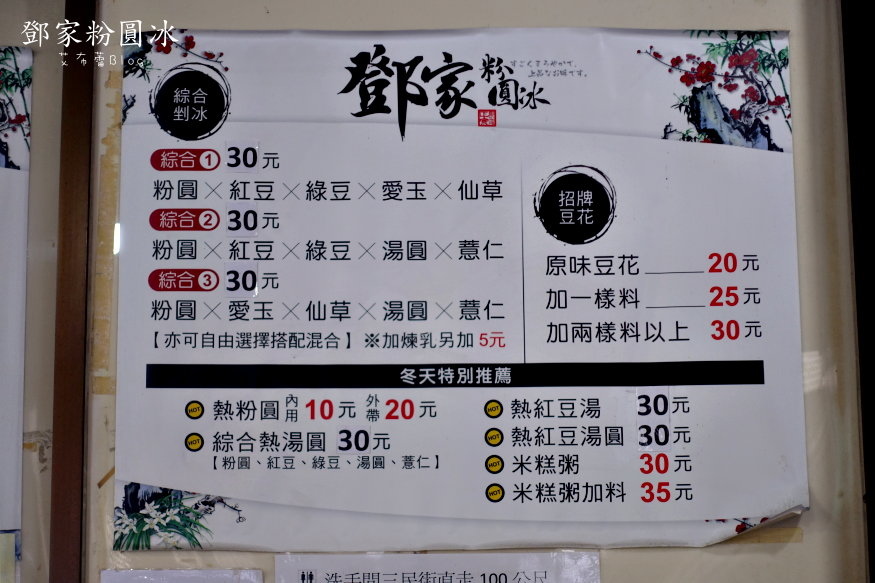 鄧家粉圓冰
艾布蕾Blog
鄧家粉圓冰
すごくまろやかで、
上品なお味です。
綜合
剉冰
綜合1 30元
粉圓×紅豆×綠豆×愛玉×仙草
綜合2 30元
粉圓×紅豆×綠豆×湯圓×薏仁
綜合3 30元
粉圓×愛玉×仙草×湯圓×薏仁
【亦可自由選擇搭配混合】※加煉乳另加 5元
招牌
豆花
原味豆花______20元
加一樣料______25元
加兩樣料以上 30元
冬天特別推薦
HOT 熱粉圓 內用 10元 外帶 20元
HOT 綜合熱湯圓 30元
【粉圓、紅豆、綠豆、湯圓、薏仁】
HOT 熱紅豆湯 30元
HOT 熱紅豆湯圓 30元
HOT 米糕粥 30元
HOT 米糕粥加料 35元
洗手間三民街直走100公尺